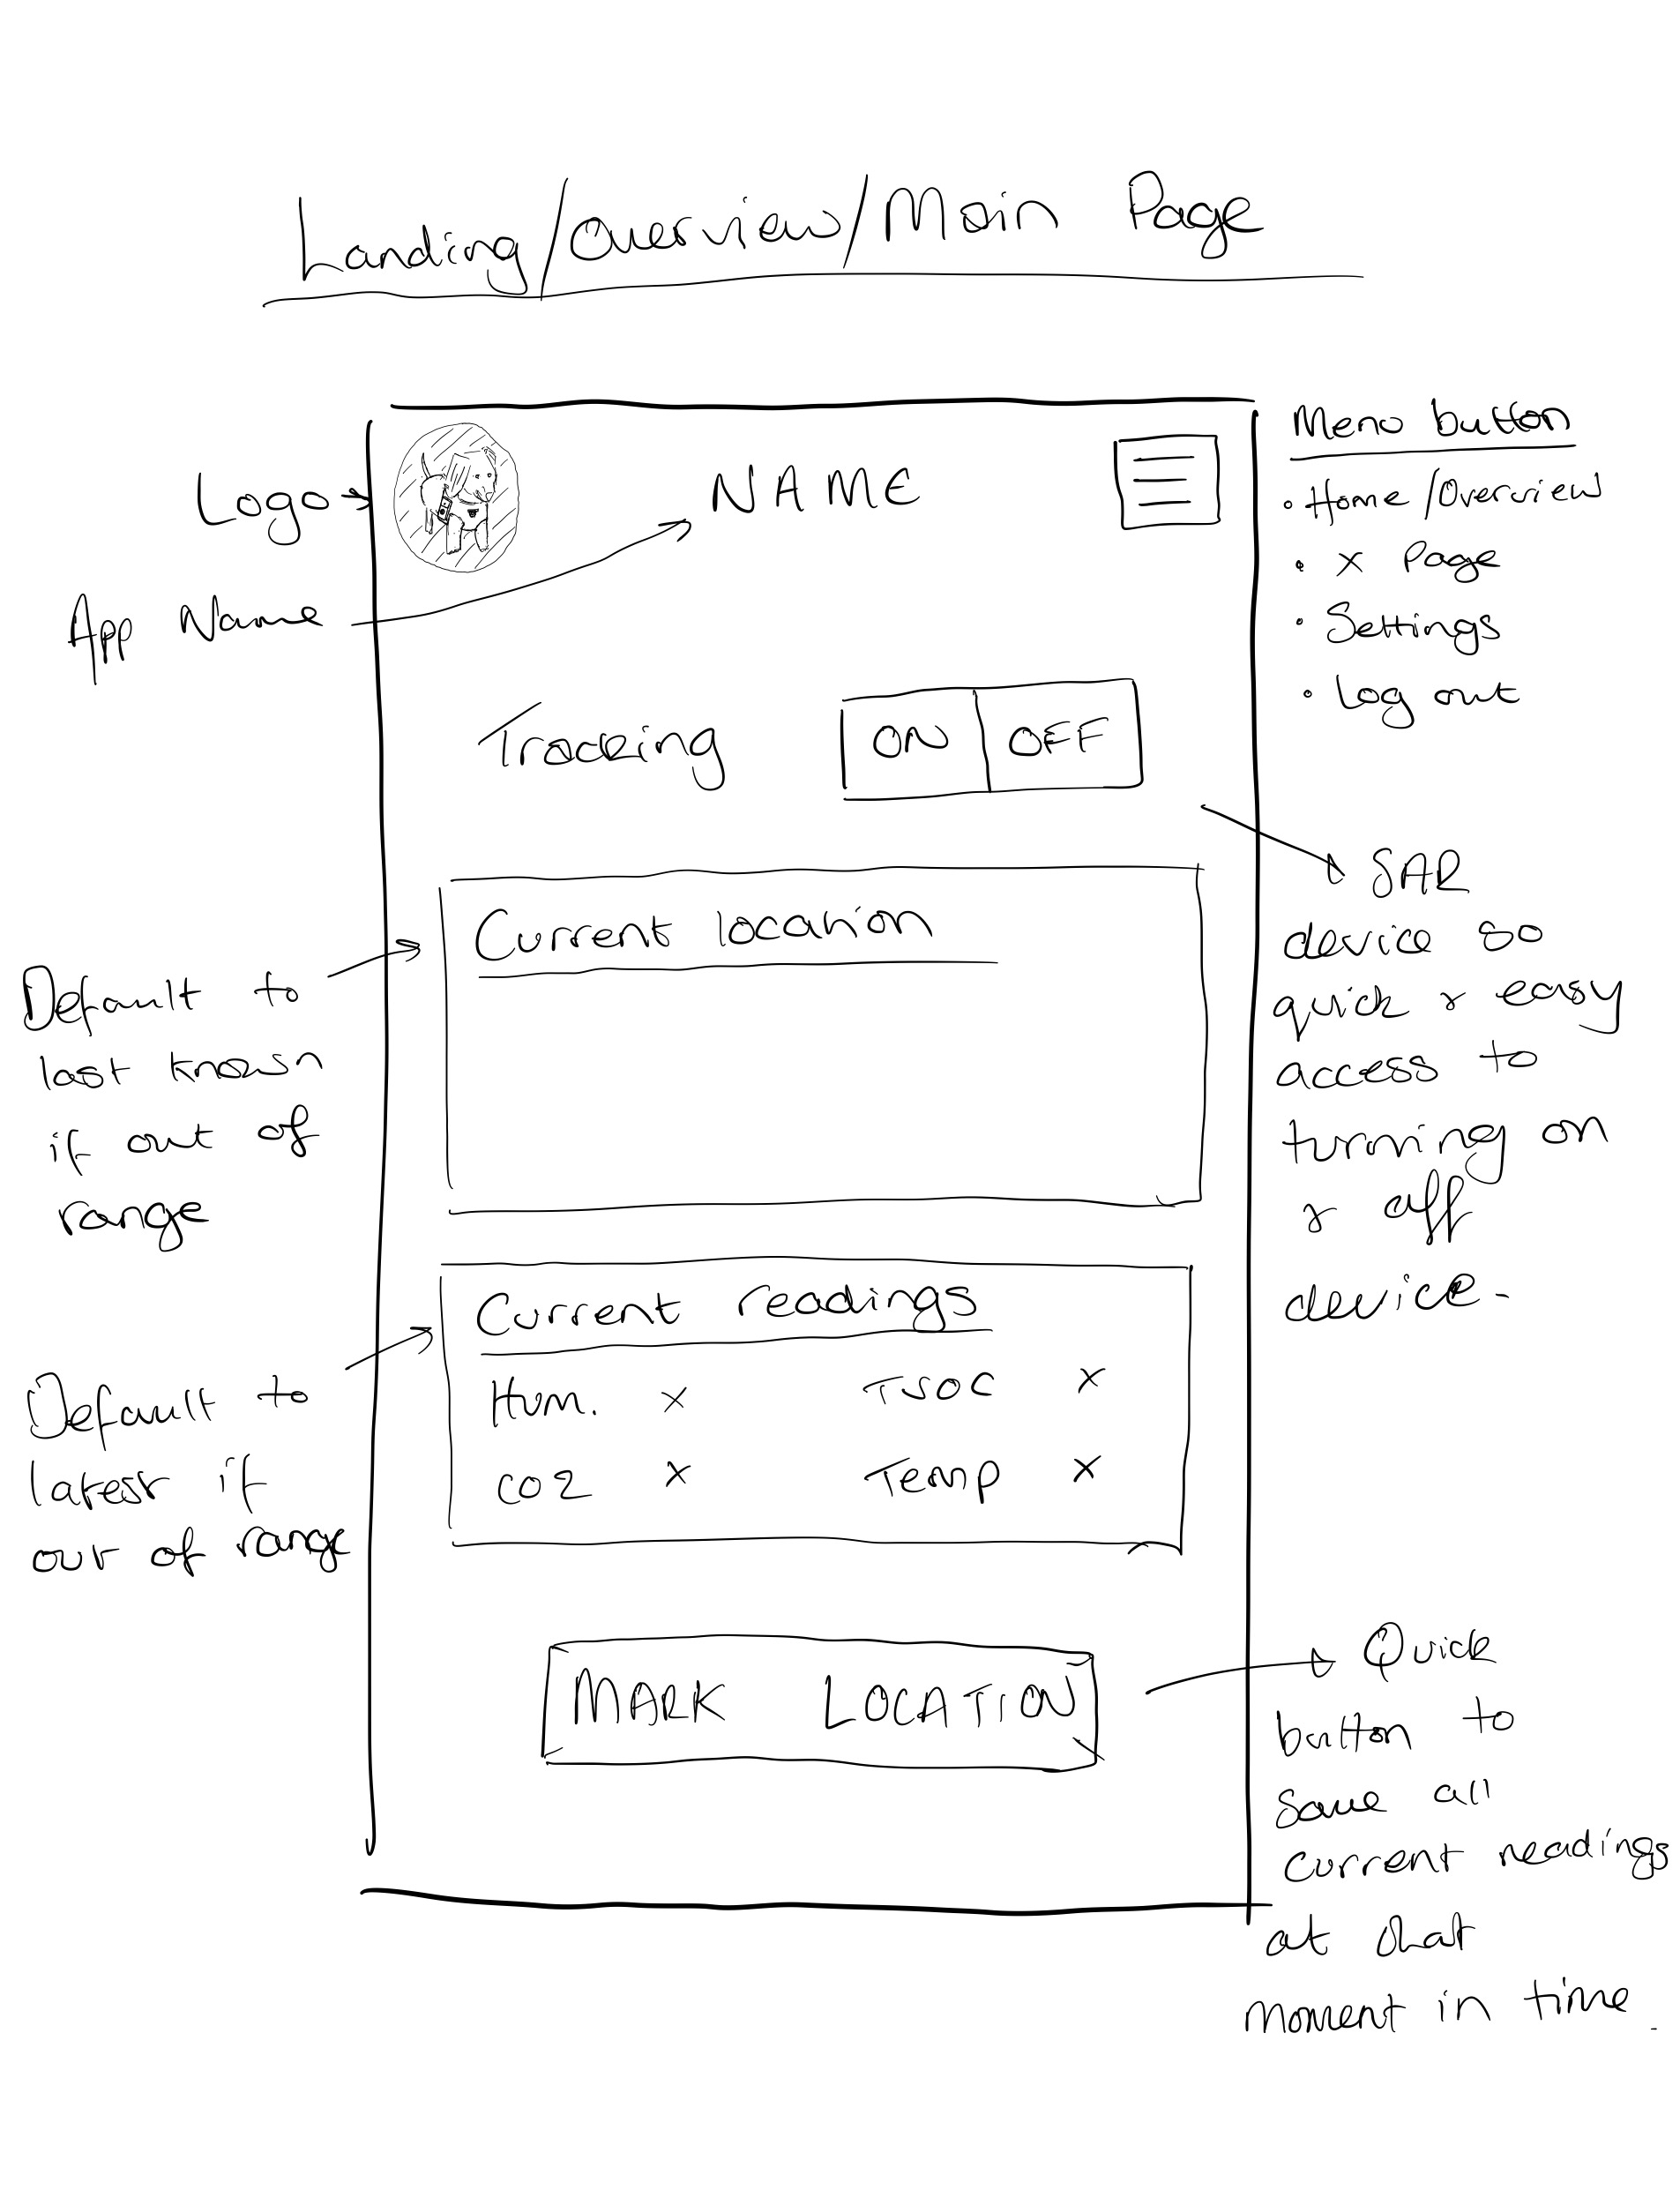 Landing/Overview/Main Page
Logo
NAME
App Name
Menu button
• Home/Overview
• X Page
• Settings
• Log out
Tracking ON OFF
SAR
device so
quick & easy
access to
turning on
& off
device.
Current location
Default to
last known
if out of
range
Current readings
Hum. x TSOC x
CO2 x Temp x
Default to
latest if
out of range
MARK LOCATION
Quick
button to
save all
current readings
at that
moment in time.